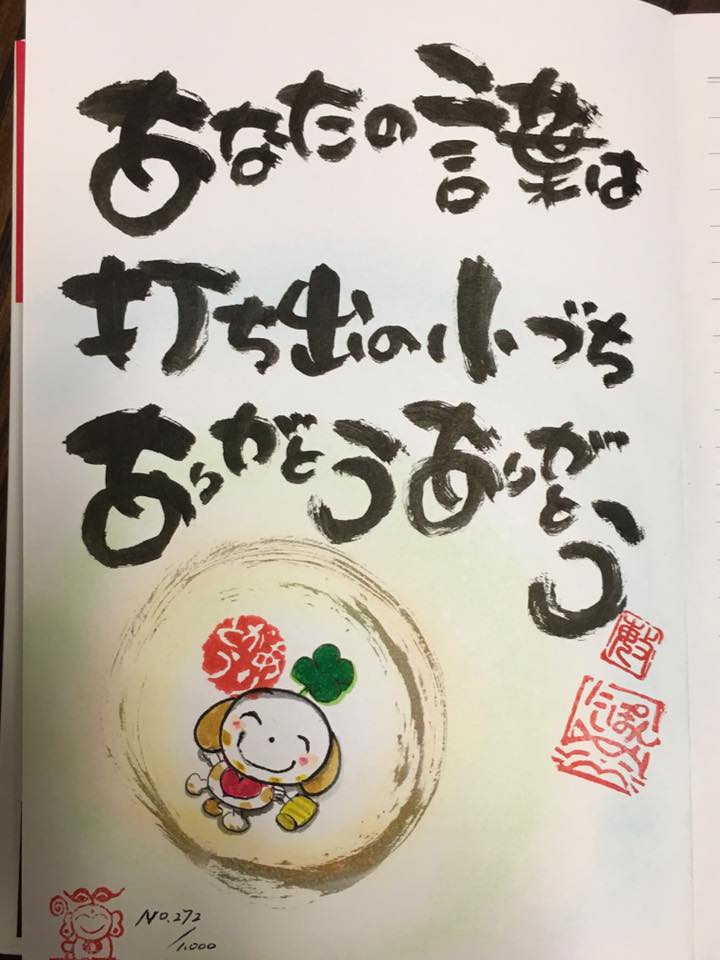 あなたの言葉は
打ち出の小づち
ありがとうありがとう
No.272
/1,000